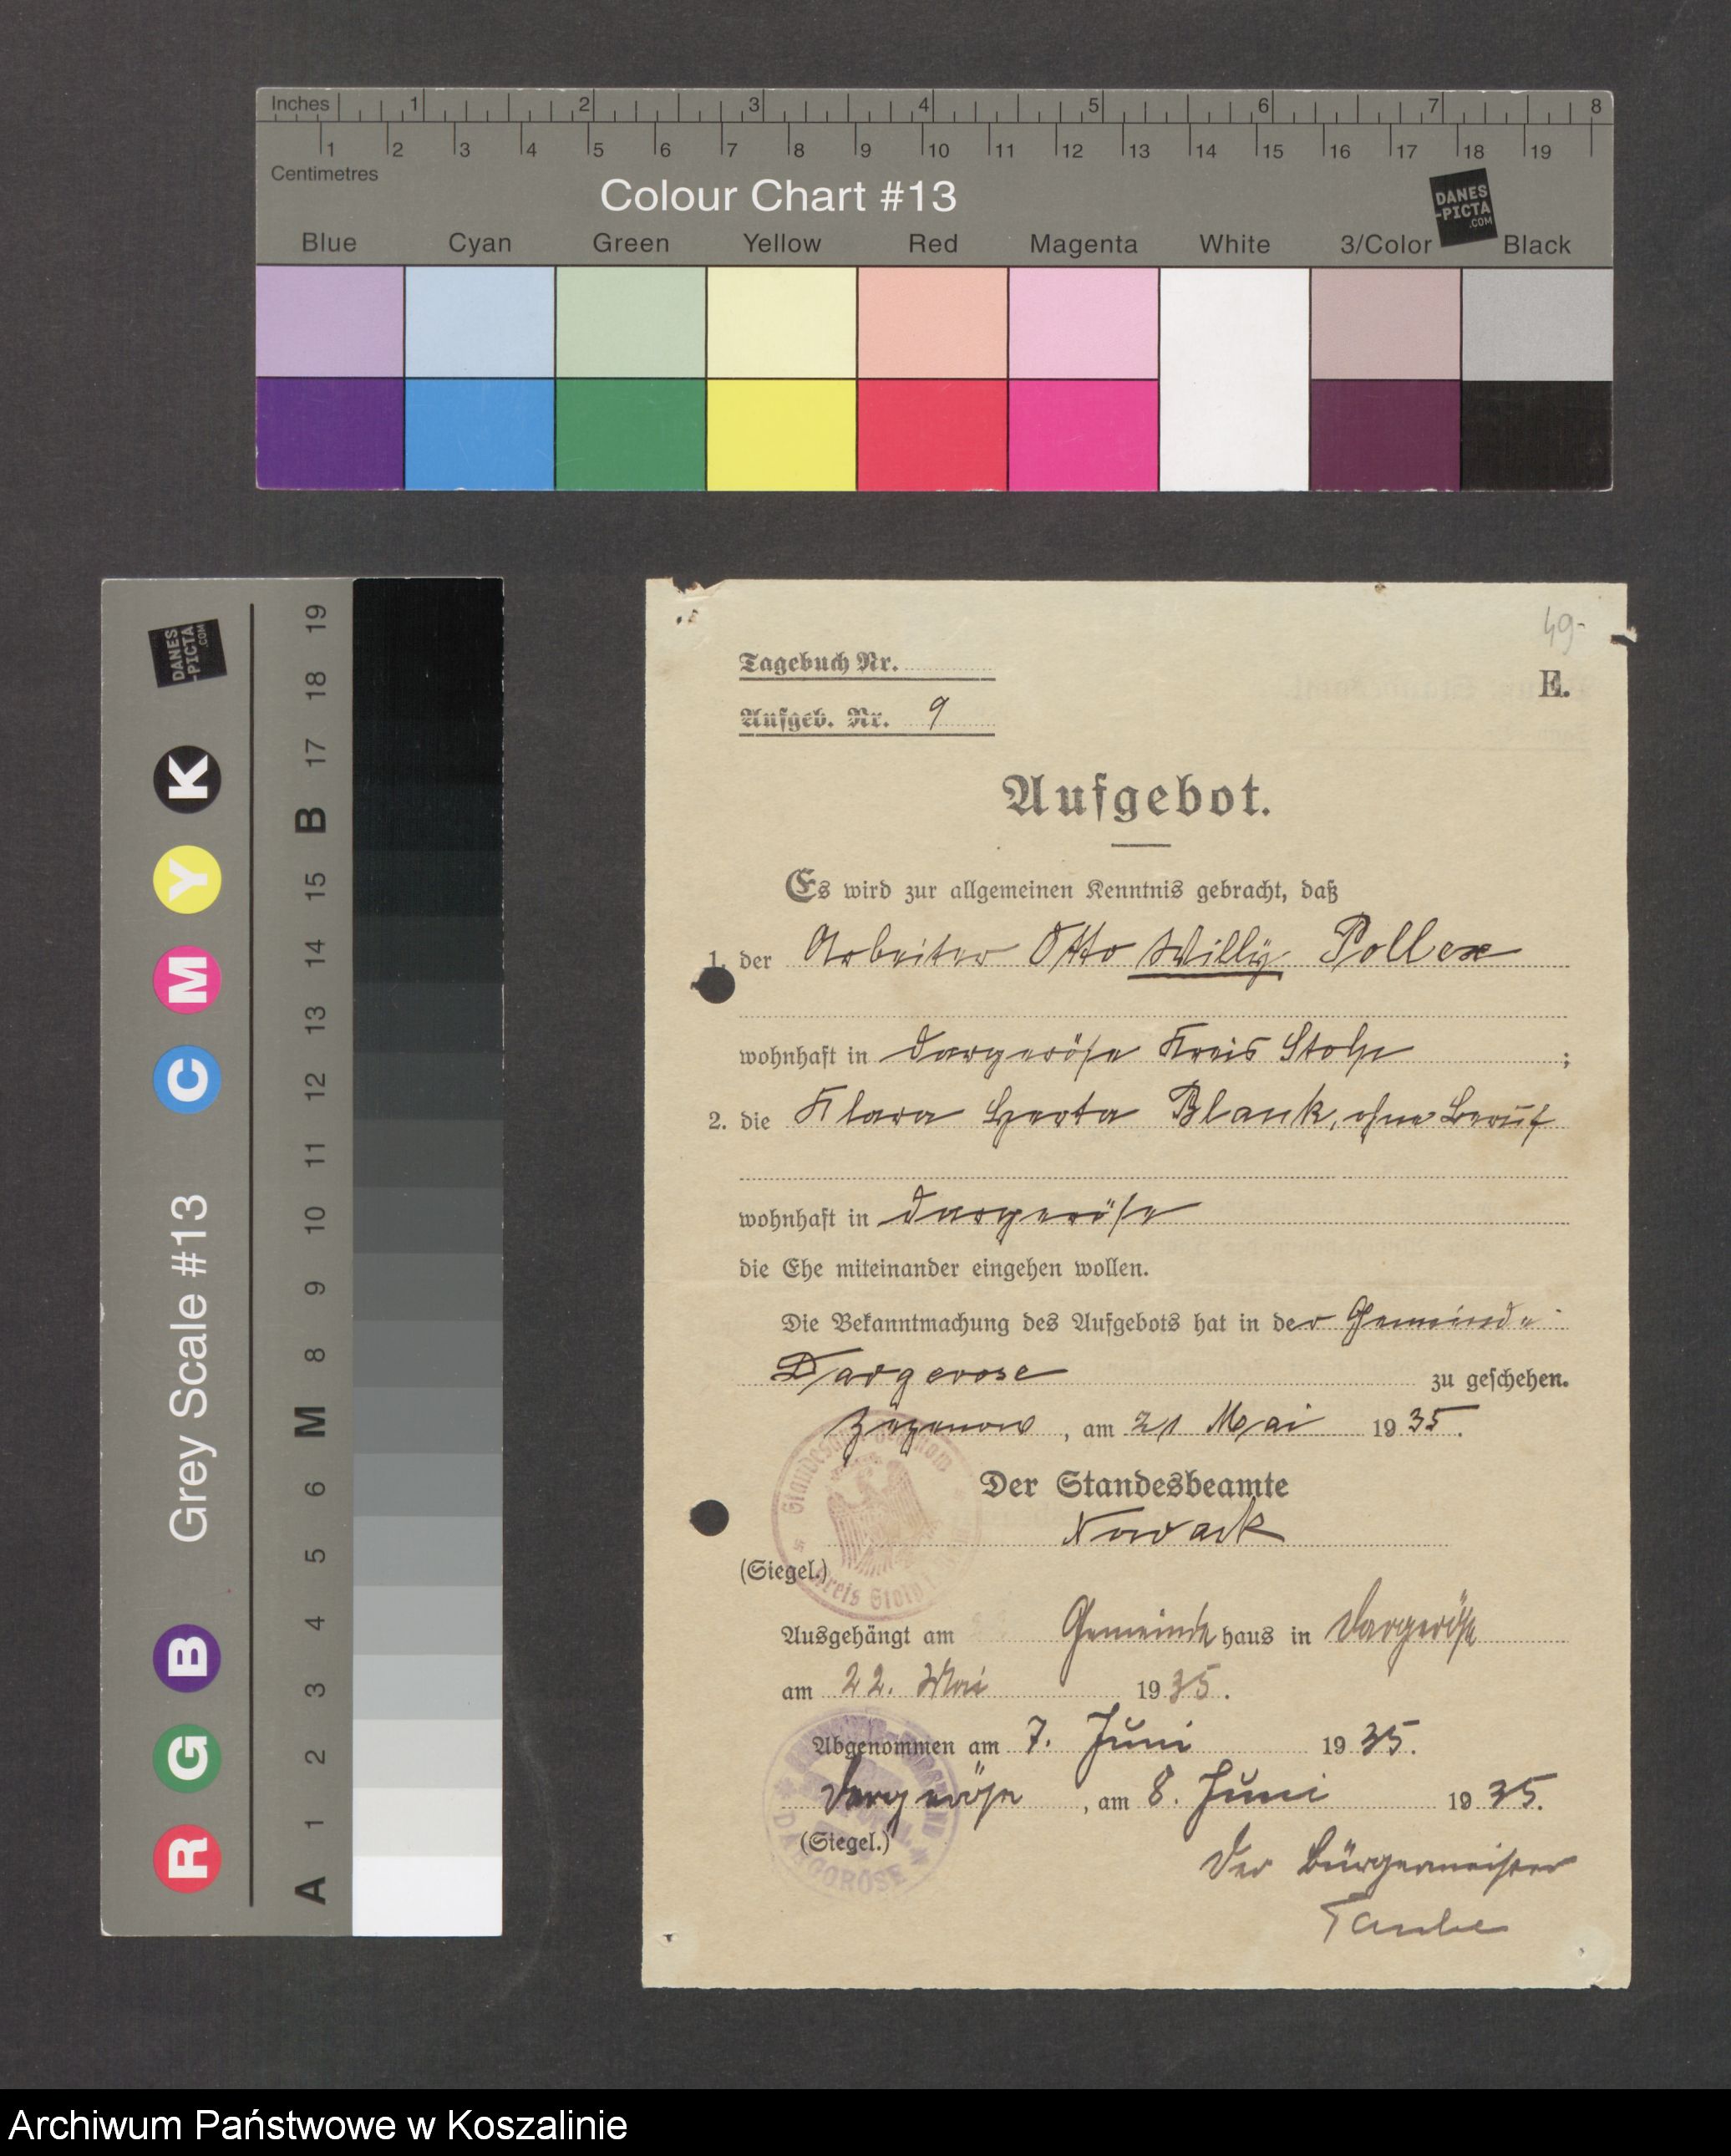 Inches 1 2 3 4 5 6 7 8
1 2 3 4 5 6 7 8 9 10 11 12 13 14 15 16 17 18 19
Centimetres
Colour Chart #13
DANES
-PICTA
.COM
Blue Cyan Green Yellow Red Magenta White 3/Color Black
DANES
-PICTA
.COM
R G B C M Y K
Grey Scale #13
A 1 2 3 4 5 6 M 8 9 10 11 12 13 14 15 B 17 18 19
49
Tagebuch Nr.
E.
Aufgeb. Nr. 9
Aufgebot.
Es wird zur allgemeinen Kenntnis gebracht, daß
1. der Arbeiter Otto Willy Pollex
wohnhaft in Dargeröse Kreis Stolp ;
2. die Klara Herta Blank, ohne Beruf
wohnhaft in Dargeröse
die Ehe miteinander eingehen wollen.
Die Bekanntmachung des Aufgebots hat in der Gemeinde
Dargerose zu geschehen.
Zezenow, am 21 Mai 1935.
Der Standesbeamte
Nowack
(Siegel.)
Kreis Stolp
Ausgehängt am Gemeindehaus in Dargeröse
am 22. Mai 1935.
Abgenommen am 7. Juni 1935.
Dargeröse, am 8. Juni 1935.
(Siegel.)
DARGORÖSE
Der Bürgermeister
Taube
Archiwum Państwowe w Koszalinie